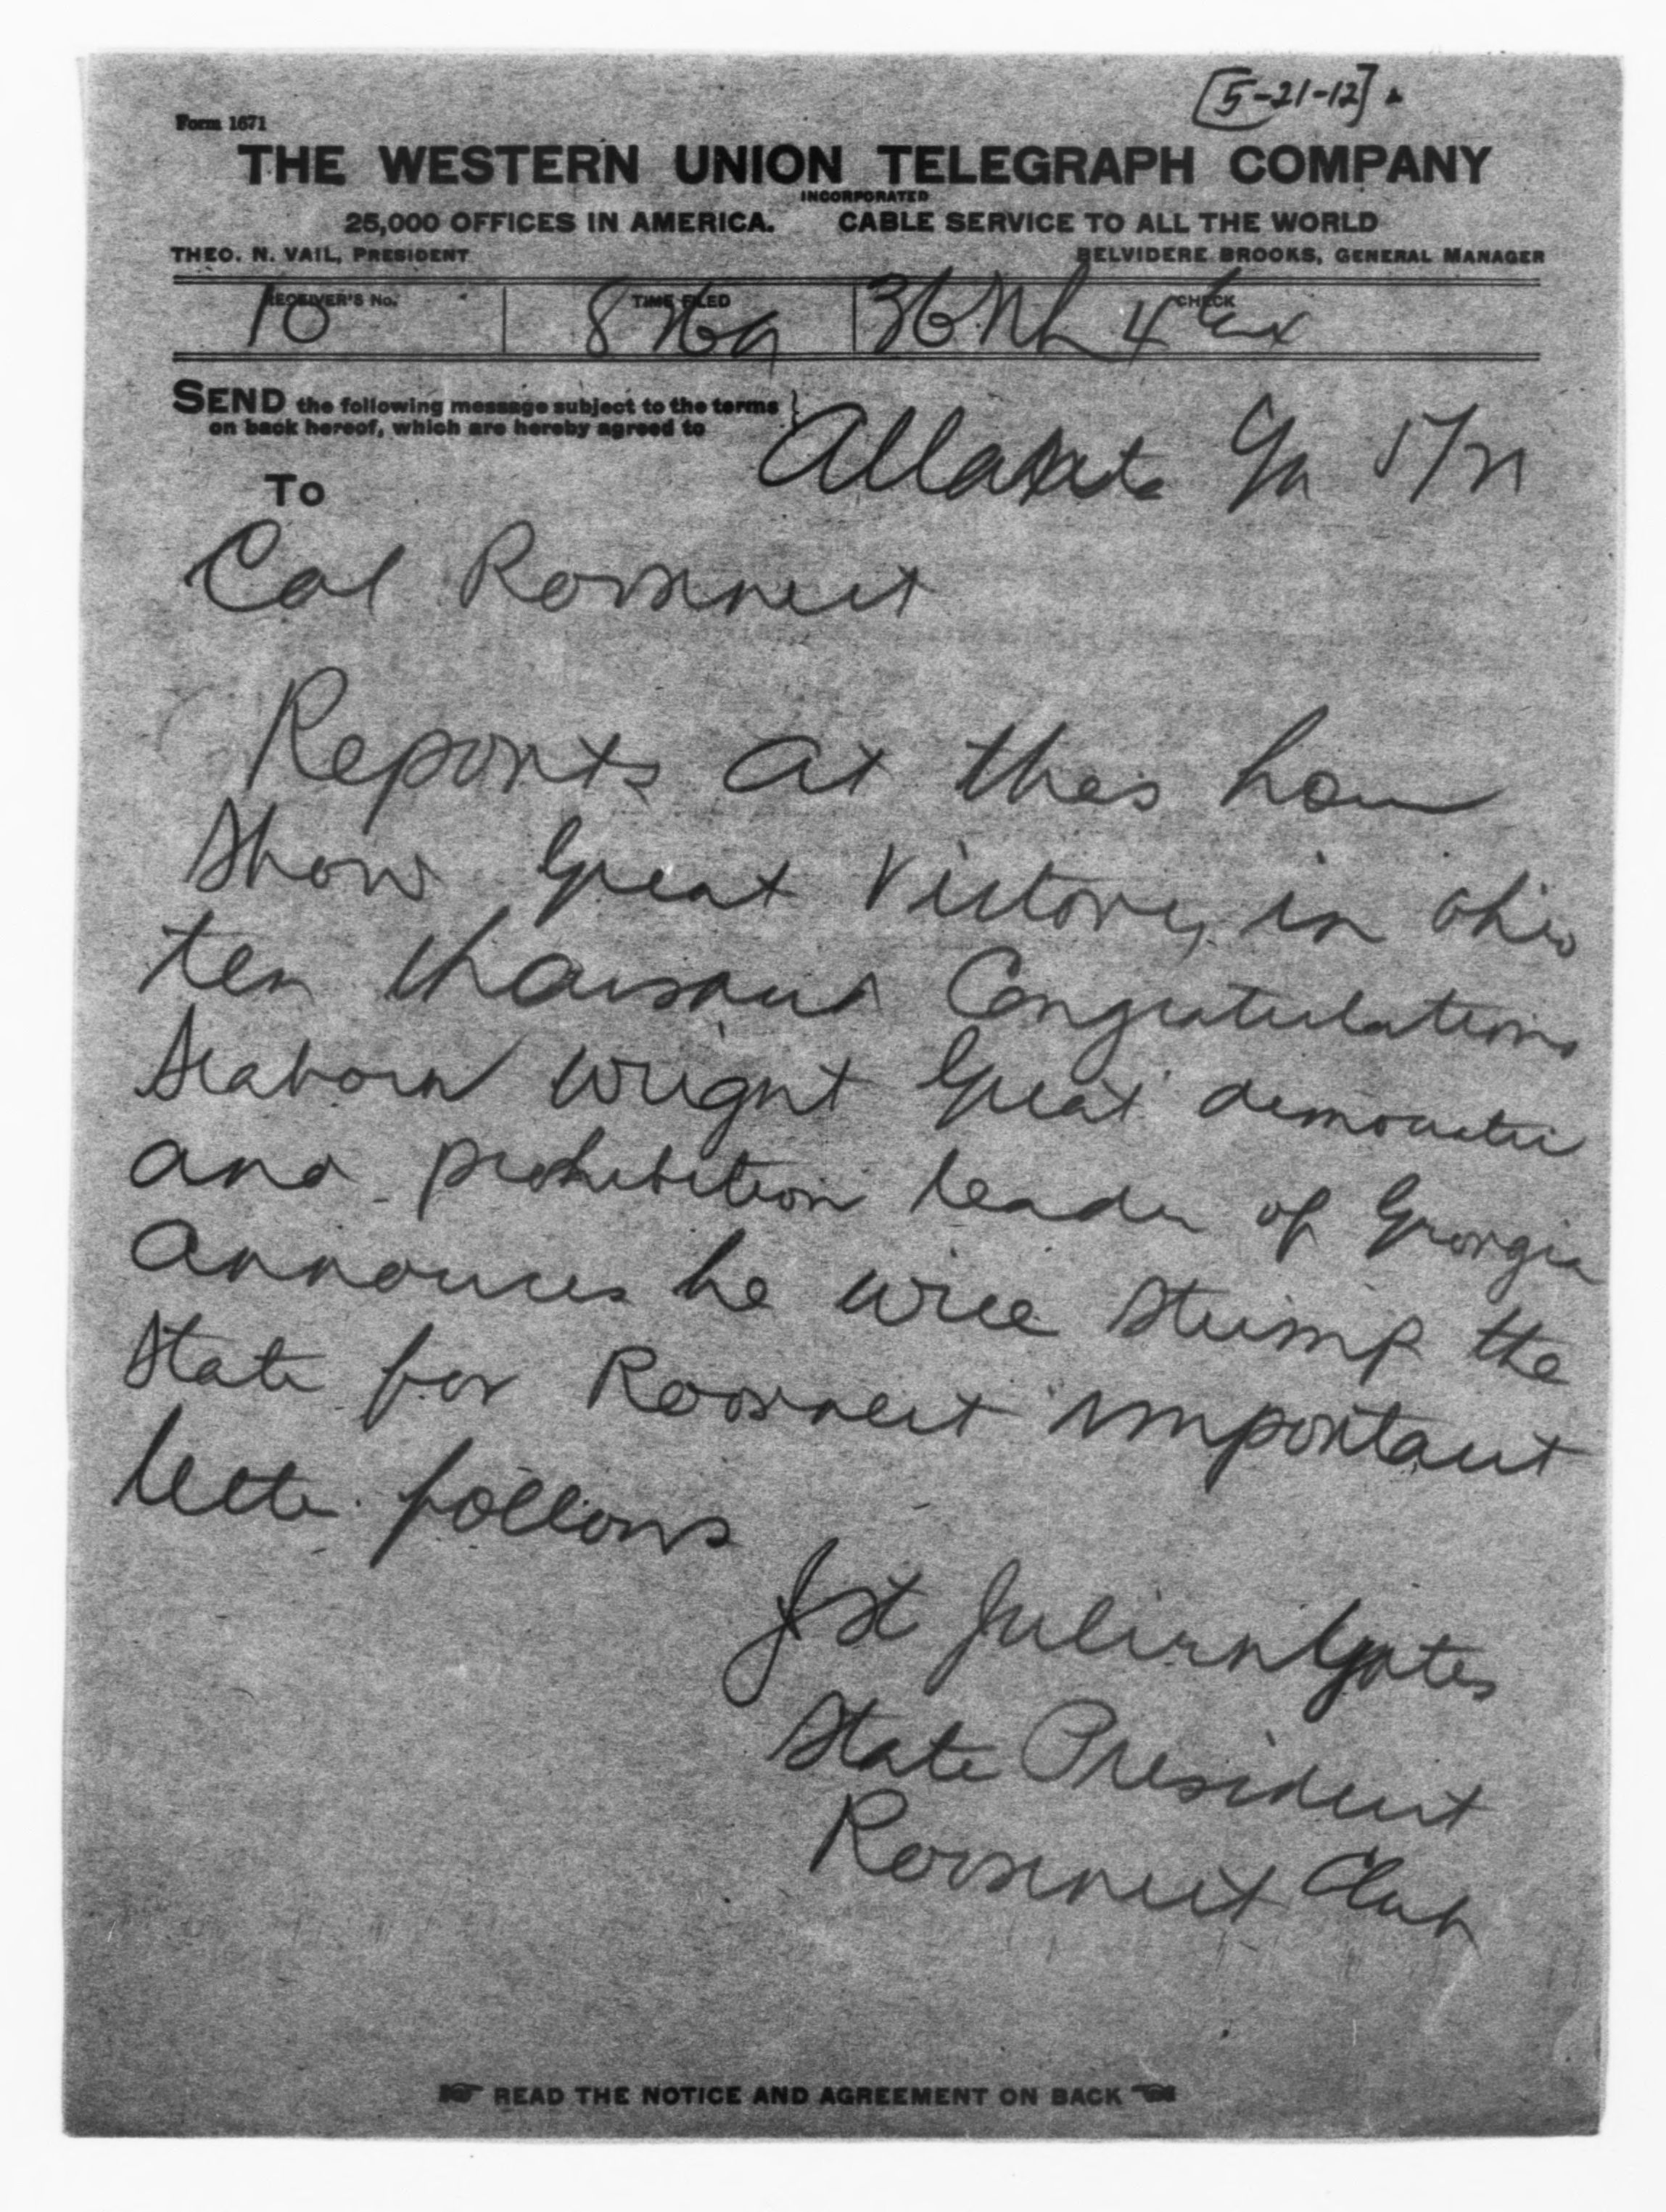 [5-21-12]
Form 1671
THE WESTERN UNION TELEGRAPH COMPANY
INCORPORATED
25,000 OFFICES IN AMERICA. CABLE SERVICE TO ALL THE WORLD
THEO. N. VAIL, PRESIDENT BELVIDERE BROOKS, GENERAL MANAGER
RECEIVER'S No. TIME FILED CHECK
10 36 Nh 4
SEND the following message subject to the terms
on back hereof, which are hereby agreed to
Ga 5/21
To
Col Roosevelt
Reports at this hour
Show Great Victory in ohio
ten thousand Congratulations
Seaborn Wright Great democratic
and prohibition leader of Georgia
Announces he will Stump the
State for Roosevelt important
letter follows
J St Julien Yates
State President
Roosevelt Club
READ THE NOTICE AND AGREEMENT ON BACK